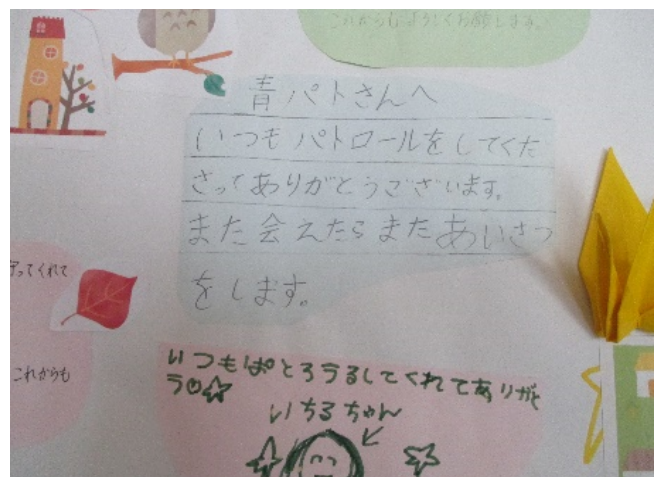 これからもよろしくお願いします。
青パトさんへ
いつもパトロールをしてくた
さってありがとうございます。
また会えたらまたあいさつ
をします。
守ってくれて
これからも
いつもぱとろうるしてくれてありがと
う
いちるちゃん